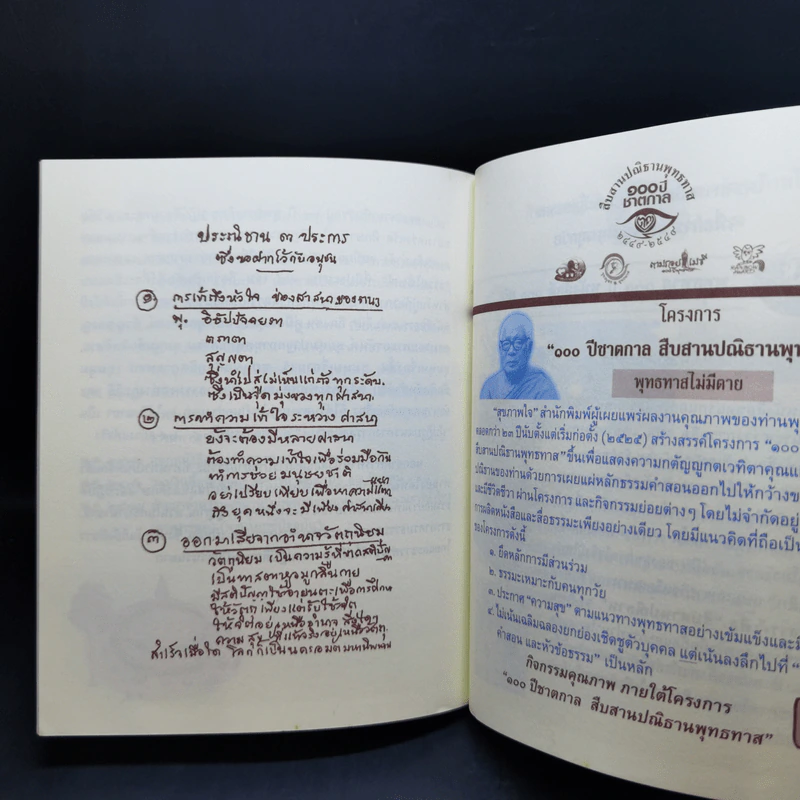 ประณิธาน ๓ ประการ
ซึ่งขอฝากไว้กับอนุชน
๑ การเข้าถึงหัวใจ ของศาสนาของตนๆ
พุ. อิทัปปัจจยตา
ตถาตา
สุญญตา
ซึ่งนำไปสู่ไม่เห็นแก่ตัว ทุกระดับ.
ซึ่งเป็นจุดมุ่งของทุกศาสนา.
๒ การทำความเข้าใจระหว่างศาสนา
ยังจะต้องมีหลายศาสนา
ต้องทำความเข้าใจเพื่อร่วมมือกัน
ทำการช่วยมนุษยชาติ
อย่าเปรียบเทียบเพื่อหาความ
ยุคหนึ่งจะมีเพียงศาสนาเดียว
๓ ออกมาเสียจากอำนาจวัตถุนิยม
วัตถุนิยม เป็นความรู้ที่ขาดสติปัญญา
เป็นทาสอาหูจมูกลิ้นกาย
มีสติปัญญาใช้อายตนะเพื่อการศึกษา
ให้วัตถุเพียงแต่รับใช้จิต
ให้จิตอยู่เหนืออำนาจ
ความสุขที่แท้จริงอยู่เหนือวัตถุ
สำเร็จเมื่อใด โลกก็เป็น
สืบสานปณิธานพุทธทาส
๑๐๐ปี
ชาตกาล
๒๔๔๙-๒๕๔๙
โครงการ
“๑๐๐ ปีชาตกาล สืบสานปณิธานพุท
พุทธทาสไม่มีตาย
“สุขภาพใจ” สำนักพิมพ์ผู้เผยแพร่ผลงานคุณภาพของท่านพุท
ตลอดกว่า ๒๓ ปีนับตั้งแต่เริ่มก่อตั้ง (๒๕๒๕) สร้างสรรค์โครงการ “๑๐๐
สืบสานปณิธานพุทธทาส” ขึ้นเพื่อแสดงความกตัญญูกตเวทิตาคุณแ
ปณิธานของท่านด้วยการเผยแผ่หลักธรรมคำสอนออกไปให้กว้างข
และมีชีวิตชีวา ผ่านโครงการ และกิจกรรมย่อยต่างๆ โดยไม่จำกัดอยู่
การผลิตหนังสือและสื่อธรรมะเพียงอย่างเดียว โดยมีแนวคิดที่ถือเป็น
ของโครงการดังนี้
๑. ยึดหลักการมีส่วนร่วม
๒. ธรรมะเหมาะกับคนทุกวัย
๓. ประกาศ “ความสุข” ตามแนวทางพุทธทาสอย่างเข้มแข็งและมี
๔. ไม่เน้นเฉลิมฉลองยกย่องเชิดชูตัวบุคคล แต่เน้นลงลึกไปที่ “
คำสอน และหัวข้อธรรม” เป็นหลัก
กิจกรรมคุณภาพ ภายใต้โครงการ
“๑๐๐ ปีชาตกาล สืบสานปณิธานพุทธทาส”